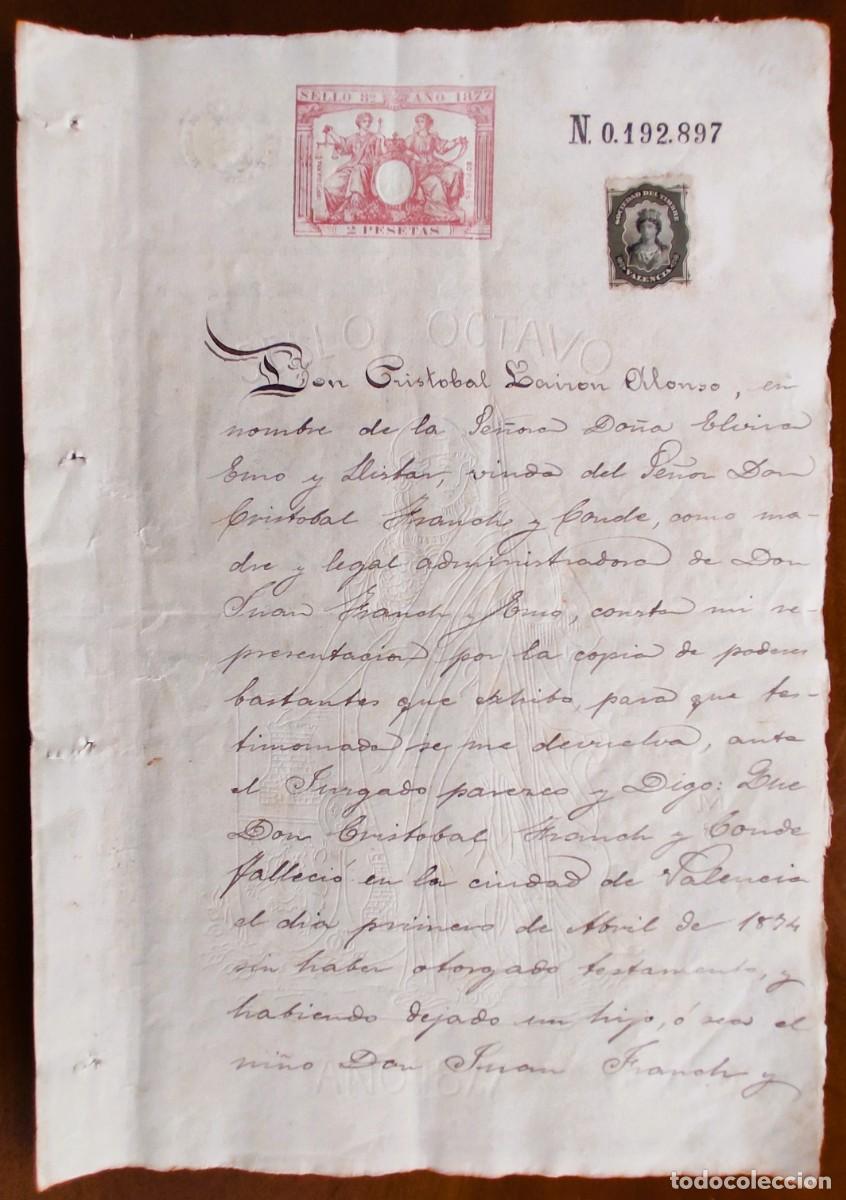 SELLO 8º AÑO 1877
2 PESETAS
N. 0.192.897
SOCIEDAD DEL TIMBRE
VALENCIA
SELLO OCTAVO
Don Cristobal Lairon Alonso, en
nombre de la Señora Doña Elvira
Emo y Llistar, viuda del Señor Don
Cristobal Franch y Conde, como ma-
dre y legal administradora de Don
Juan Franch y Emo, consta mi re-
presentacion por la copia de poderes
bastantes que exhibo, para que tes-
timoniada se me devuelva, ante
el Juzgado parezco y Digo: Que
Don Cristobal Franch y Conde
falleció en la ciudad de Valencia
el dia primero de Abril de 1874
sin haber otorgado testamento, y
habiendo dejado un hijo, ó sea el
niño Don Juan Franch y
AÑO 1877
todocoleccion